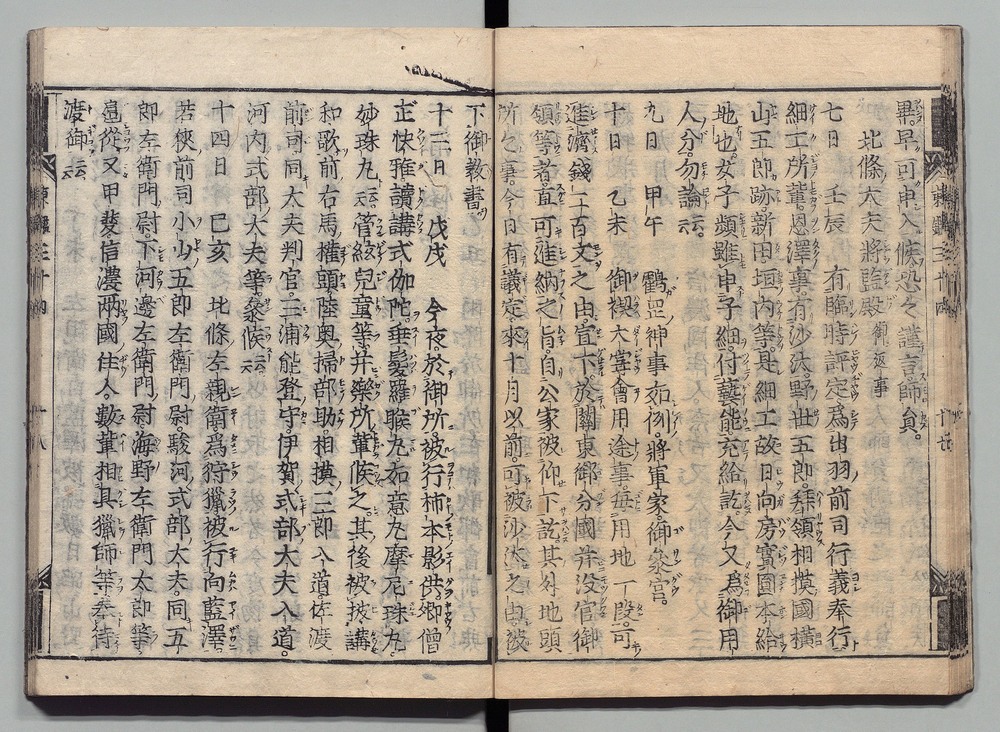 畢早可申入候恐々謹言師員。
北條大夫將監殿御返事
七日　壬辰　有臨時評定爲出羽前司行義奉行
細工所輩恩澤事有沙汰野世五郎拜領相摸國横
山五郎跡新田垣内等是細工故日向房實圓本給
地也。女子頻雖申子細付藝能充給訖。今又爲御用
人分勿論云云。
九日　甲午　鶴岡神事如例將軍家御參宮。
十日　乙未　御禊大嘗會用途事毎用地一段可
進濟錢之由宣下於關東御分國并没官御
領等者直可進納之旨自公家被仰下訖其外地頭
所之事今日有議定來十月以前可被沙汰之由被
下御教書
十三日　戊戌　今夜於御所被行柿本影供御僧
正快雅讀講式伽陀垂髮羅睺丸如意丸摩尼珠丸
妙珠丸云云管絃兒童等并樂所輩候之其後被披講
和歌前右馬權頭陸奥掃部助相摸三郎入道佐渡
前司同大夫判官三浦能登守伊賀式部大夫入道
河内式部大夫等參候云云
十四日　己亥　北條左親衛爲狩獵被行向藍澤
若狹前司小山五郎左衛門尉駿河式部大夫同五
郎左衛門尉下河邊左衛門尉海野左衛門太郎等
扈從又甲斐信濃兩國住人數輩相具獵師等奉待
渡御云云
東鑑三十四
十八